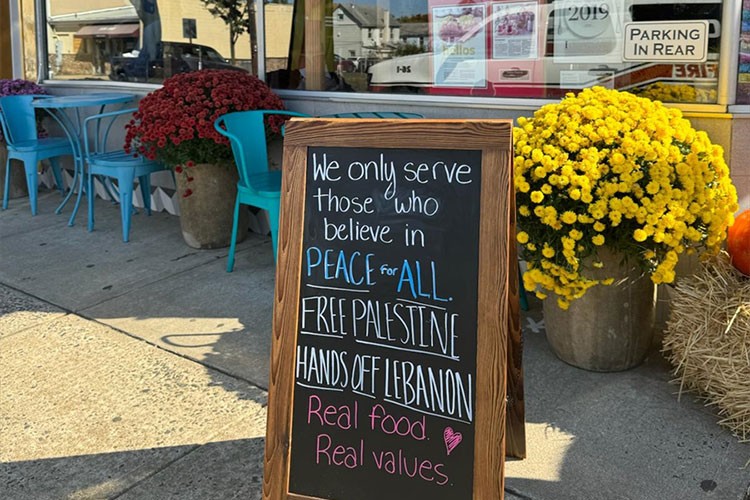 2019
PARKING
IN REAR
FIRE
We only serve
those who
believe in
PEACE for ALL.
FREE PALESTINE
HANDS OFF LEBANON
Real food.
Real values.